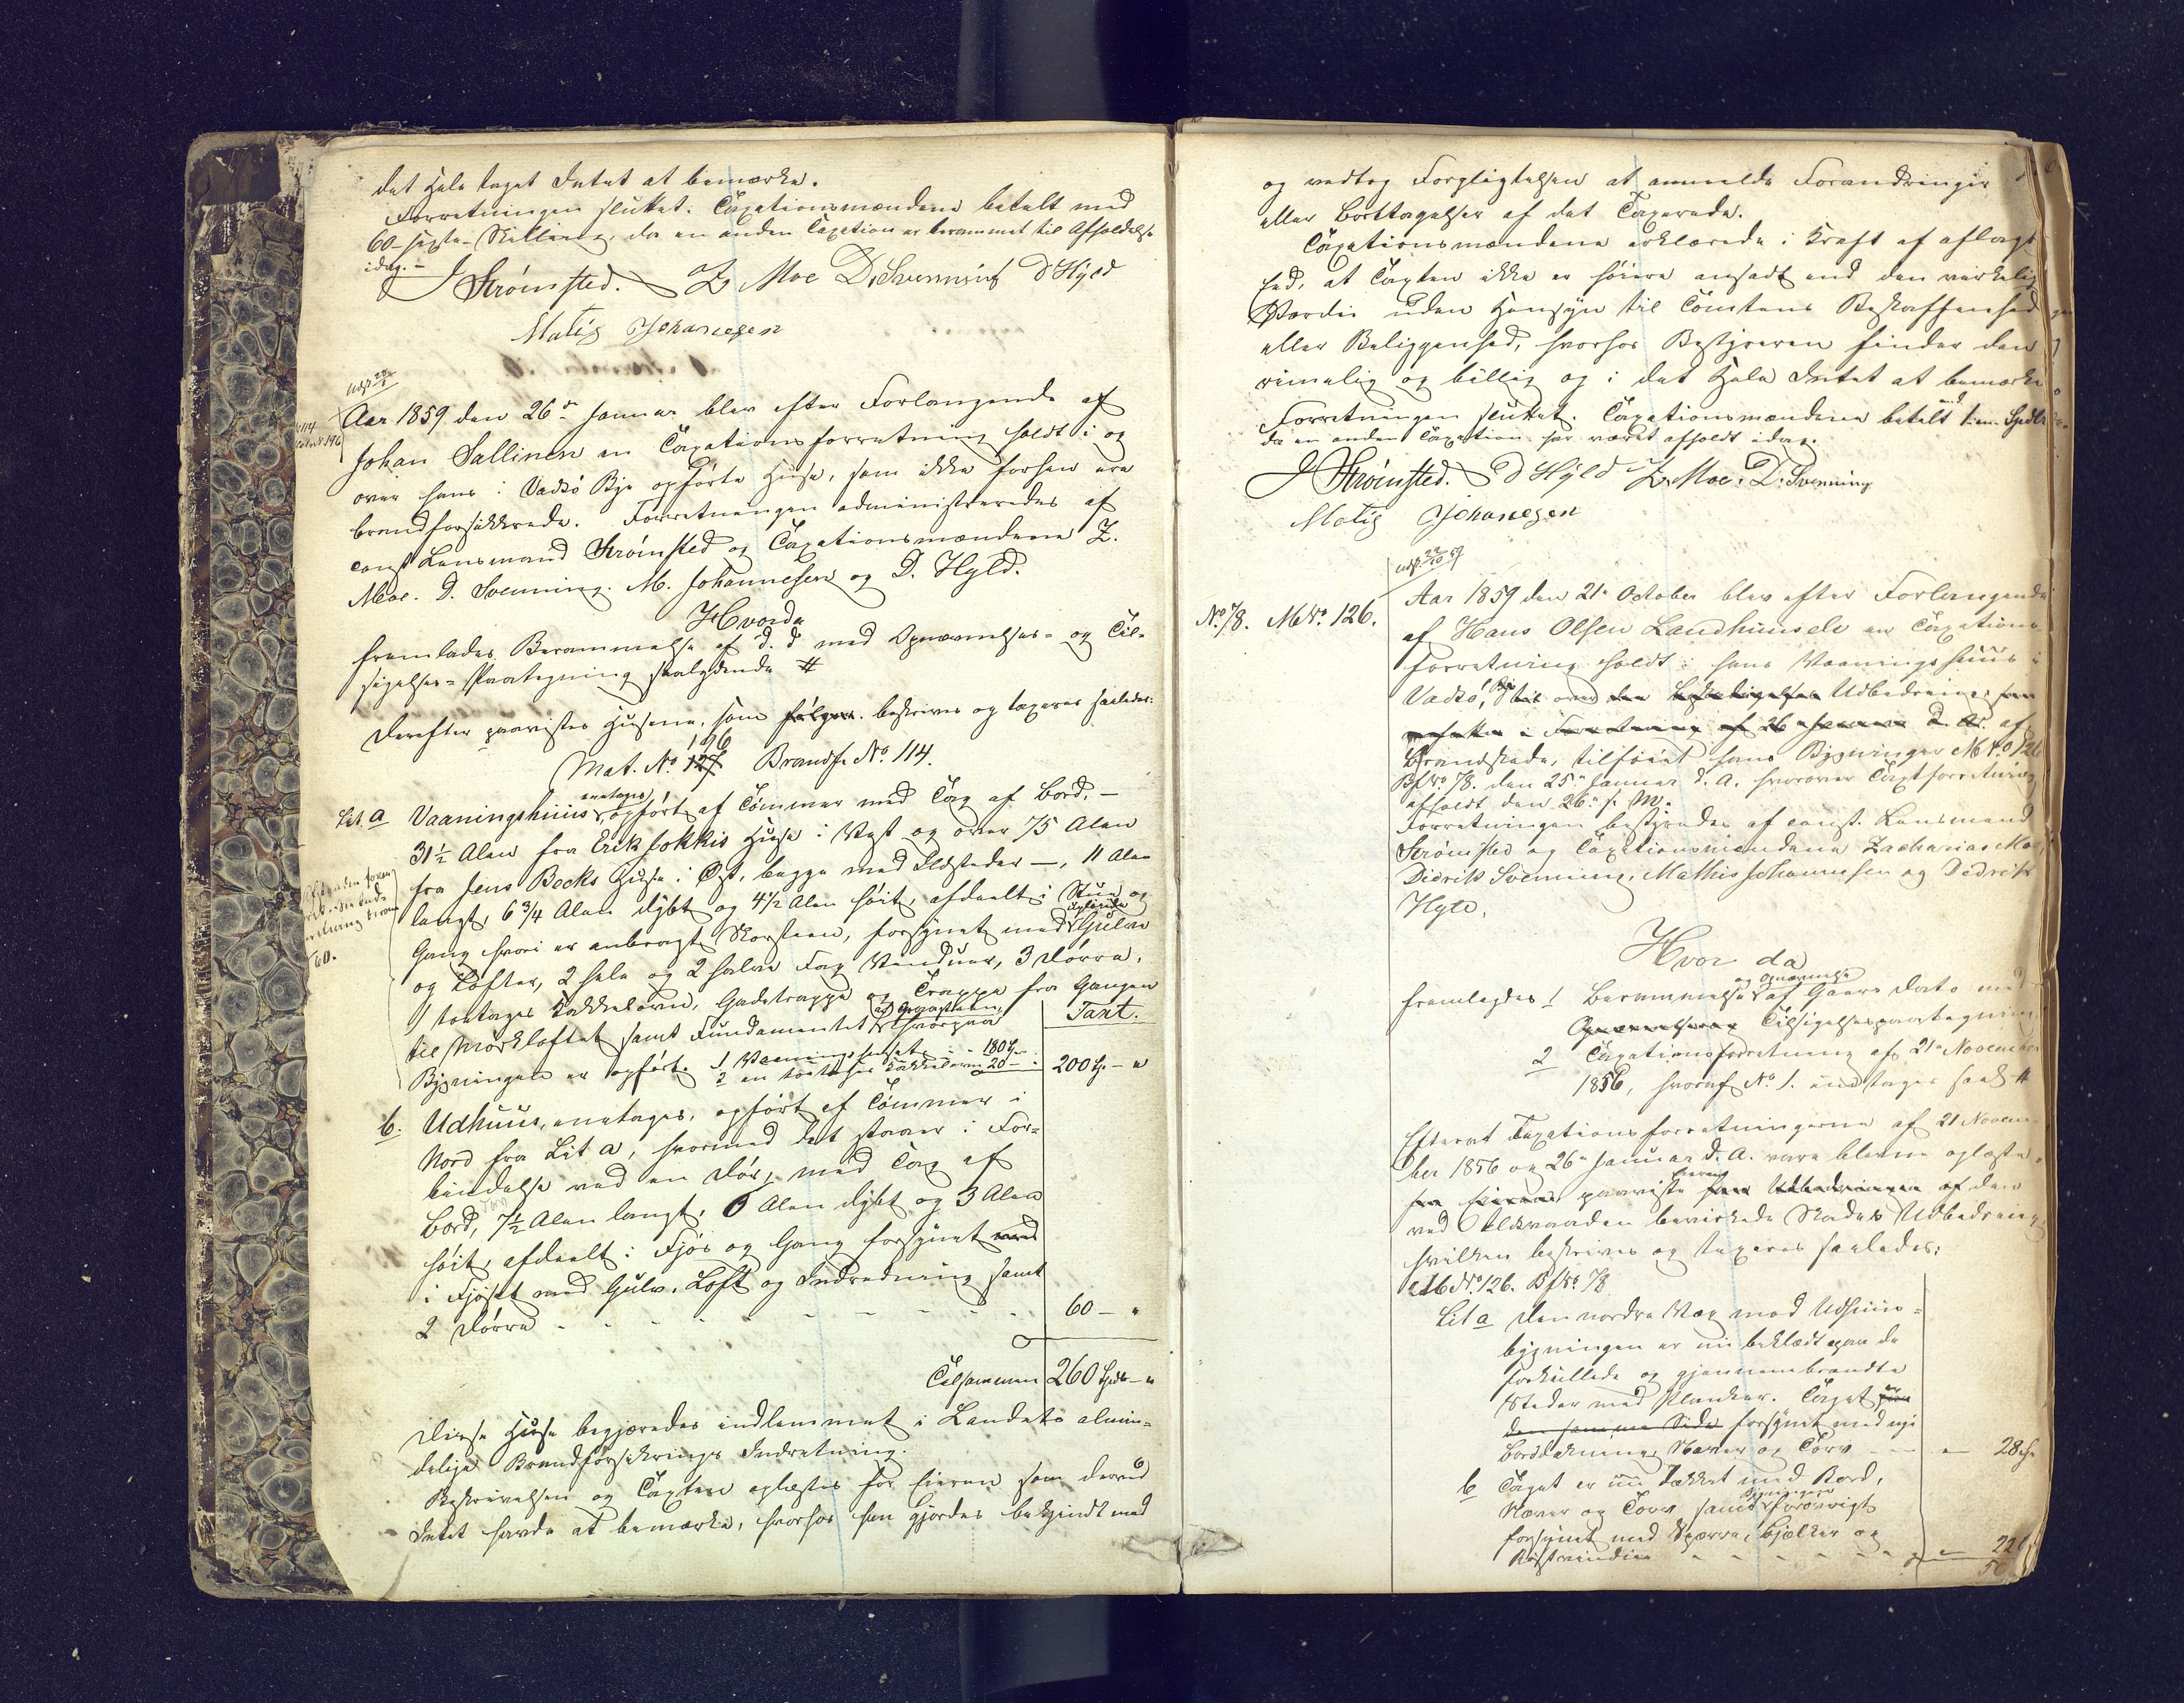 det Hele taget Intet at bemærke.
Forretningen sluttet. Taxationsmændene betalt med
60 - sexti - Skilling, da en anden Taxation er berammet til Afholdelse
idag. -
J Strømsted. Z Moe D. Svenning D Hyld
Matis Johanesen
Udf. 28/1
Aar 1859 den 26de Januar blev efter Forlangende af
Johan Sallinen en Taxationsforretning holdt i og
over hans i Vadsö Bye opførte Huse, som ikke forhen ere
brandforsikkrede. Forretningen administreredes af
const. Lensmand Strømsted og Taxationsmændene Z.
Moe. D. Svenning. M. Johannesen og D. Hyld.
Hvorda
fremlades Berammelse af d. d. med Opnævnelses- og Til-
sigelses-Paategning saalydende #
Derefter paavistes Husene, som følger. beskrives og taxeres saaledes:
196
Mat. No. 127 Brandf. No. 114.
Lit. a Vaaningshuus, opført af Tømmer med Tag af Bord, -
eenetages
31 1/2 Alen fra Erik Jokkis Huse i Vest og over 75 Alen
fra Jens Becks Huse i Øst, begge med Ildsteder -, 11 Alen
langt, 6 3/4 Alen dybt og 4 1/2 Alen høit, afdeelt i Stue og
Gang hvori er anbragt Skorsteen, forsynet med Gulve
og Lofter, 2 hele og 2 halve Fag Vinduer, 3 Dørre,
1 toetages Kakkelovn, Gadetrappe og Trappe fra Gangen
til Mørkloftet samt Fundamentet hvorpaa
Taxt.
Bygningen er opført. 1 Vaaningshuset - - 180 Sp.
2 en toetages Kakkelovn 20 - 200 Sp. - "
b. Udhuus, eenetages, opført af Tømmer i
Nord fra Lit a, hvormed det staaer i For-
bindelse ved en Dør, med Tag af
Bord, 7 1/2 Alen langt, 6 Alen dybt og 3 Alen
høit, afdeelt i Fjøs og Gang forsynet med
i Fjøset med Gulv, Loft og Indredning samt
2 Dørre - - - - - - - 60 - "
Tilsammen 260 Spdlr - "
Disse Huse begjæredes indlemmet i Landets almin-
delige Brandforsikrings Indretning.
Beskrivelsen og Taxten oplæstes for Eieren som derved
Intet havde at bemærke, hvorhos han gjordes bekjendt med
og vedtog Forpligtelsen at anmelde Forandringer
eller Borttagelser af det Taxerede.
Taxationsmændene erklærede i Kraft af aflagt
Eed, at Taxten ikke er høiere ansadt end den virkelige
Værdi uden Hensyn til Tomtens Beskaffenhed
eller Beliggenhed, hvorhos Bestyreren finder den
rimelig og billig og i det Hele Intet at bemærke
Forretningen sluttet. Taxationsmændene betalt 1 - en - Spdlr
da en anden Taxation har været afholdt idag.
J Strømsted. D Hyld Z. Moe. D. Svenning
Matis Johanesen
Udf. 22/10 59
No. 78. MNo. 126.
Aar 1859 den 21de October blev efter Forlangende
af Hans Olsen Landhuusele en Taxations-
forretning holdt i hans Vaaningshuus i
Vadsö, Bye over den Udbedring
i Forretning af 26 Januar d. A. af
Brandskade, tilføiet hans Bygninger MNo 126
BfNo. 78. den 25de Januar d. A. hvorover Taxtforretning
afholdt den 26de s. M.
Forretningen bestyredes af const. Lensmand
Strømsted og Taxationsmændene Zacharias Moe,
Didrik Svenning, Mathis Johannesen og Didrik
Hyld.
Hvor da
og Opnævnelse
fremlagdes 1 Berammelse af Gaars Dato med
Opnævnelses Tilsigelsespaategning
2 Taxationsforretning af 21de November
1856, hvoraf No. 1. indtages saal #
Efterat Taxationsforretningerne af 21 Novem-
ber 1856 og 26de Januar d. A. vare blevne oplæste,
Eieren
paaviste Udbedringen af den
ved Ildsvaaden bevirkede Skades Udbedring
hvilken beskrives og taxeres saaledes:
MNo. 126. BfNo. 78
Lit a Den nordre Væg mod Udhuus-
bygningen er nu beklædt paa de
forkullede og gjennembrændte
Steder med Planker. Taget
den samme Side forsynet med nye
Bordtækning, Næver og Törv - - - 28 Sp.
b Taget er nu tækket med Bord,
Næver og Törv samt forøvrigt
Bygningen
forsynet med Sperre, Bjælker og
- - - - - - 22